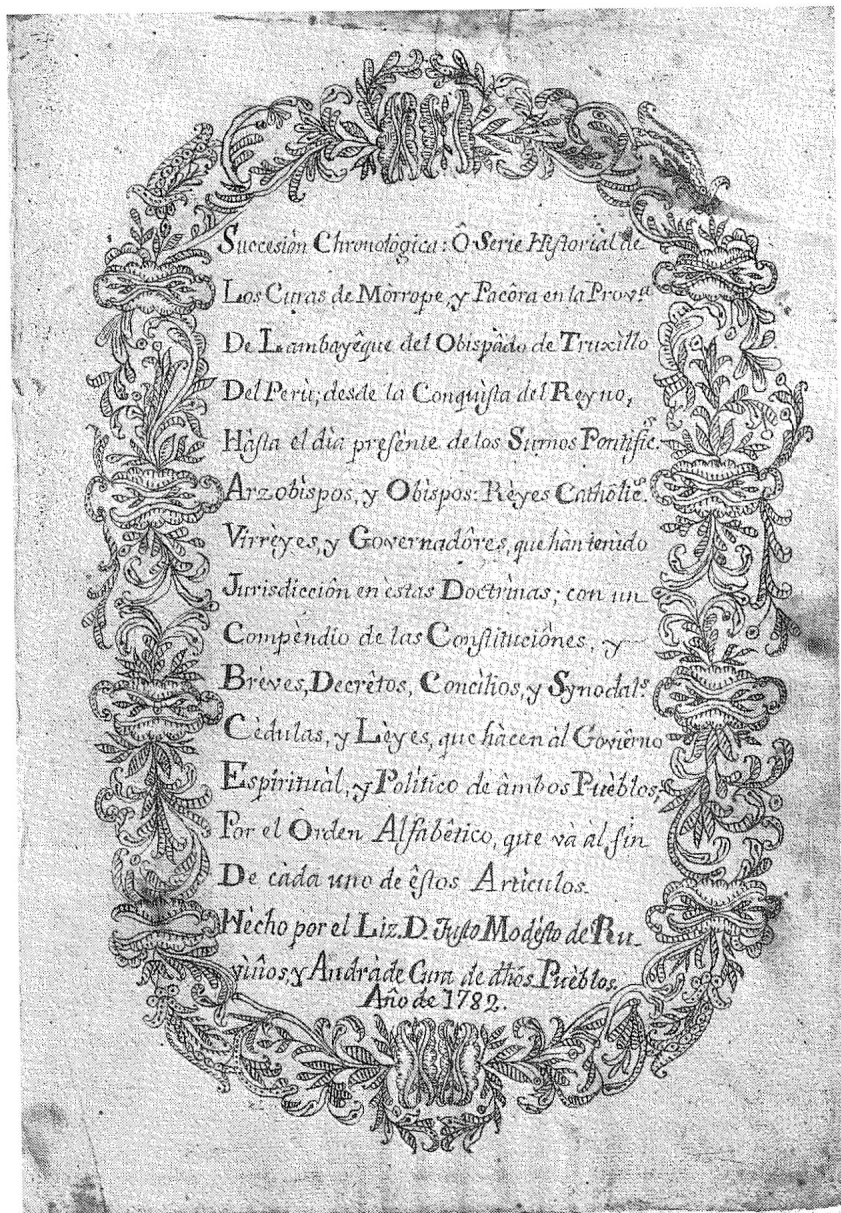 Succesiòn Chronològica: Ô Serie Historiàl de
Los Curas de Mòrrope, y Pacôra en la Prov.ª
De Lambayêque del Obispàdo de Truxìllo
Del Perù; desde la Conquista del Reyno,
Hàsta el dia presènte de los Sumos Pontific.ˢ
Arzobìspos, y Obìspos: Rèyes Cathôlic.ˢ
Virrèyes, y Governadôres, que hàn tenìdo
Jurisdicciôn en èstas Doctrìnas; con un
Compèndio de las Constituciônes, y
Brèves, Decrêtos, Concìlios, y Synodal.ˢ
Cèdulas, y Lèyes, que hàcen al Goviêrno
Espirituàl, y Polìtico de âmbos Puèblos,
Por el Orden Alfabêtico, que và àl fin
De càda uno de êstos Artìculos.
Hècho por el Liz. D. Justo Modèsto de Ru-
viños, y Andràde Cura de dhos Puèblos.
Año de 1782.